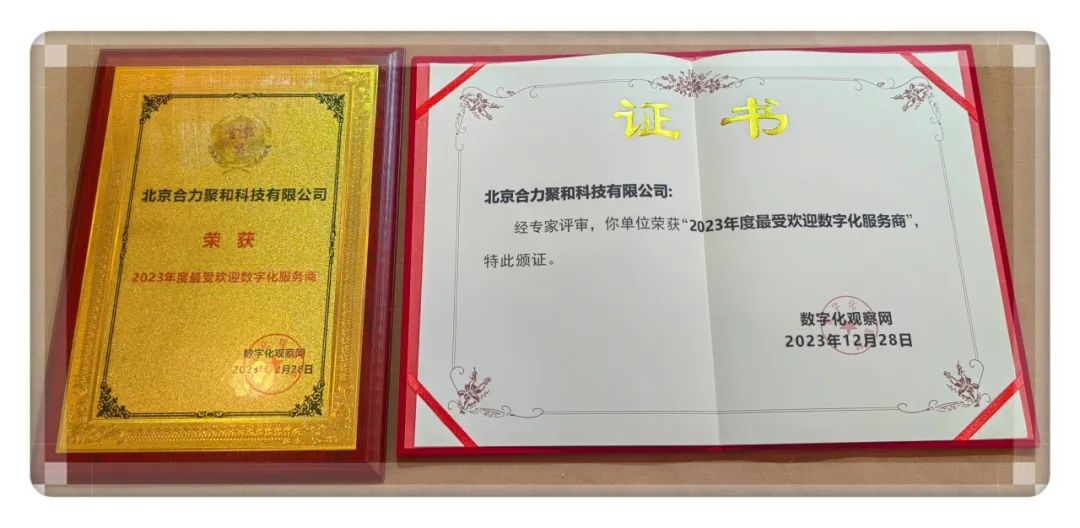 北京合力聚和科技有限公司
荣 获
2023年度最受欢迎数字化服务商
数字化观察网
2023年12月28日
证 书
北京合力聚和科技有限公司:
经专家评审，你单位荣获“2023年度最受欢迎数字化服务商”，
特此颁证。
数字化观察网
2023年12月28日